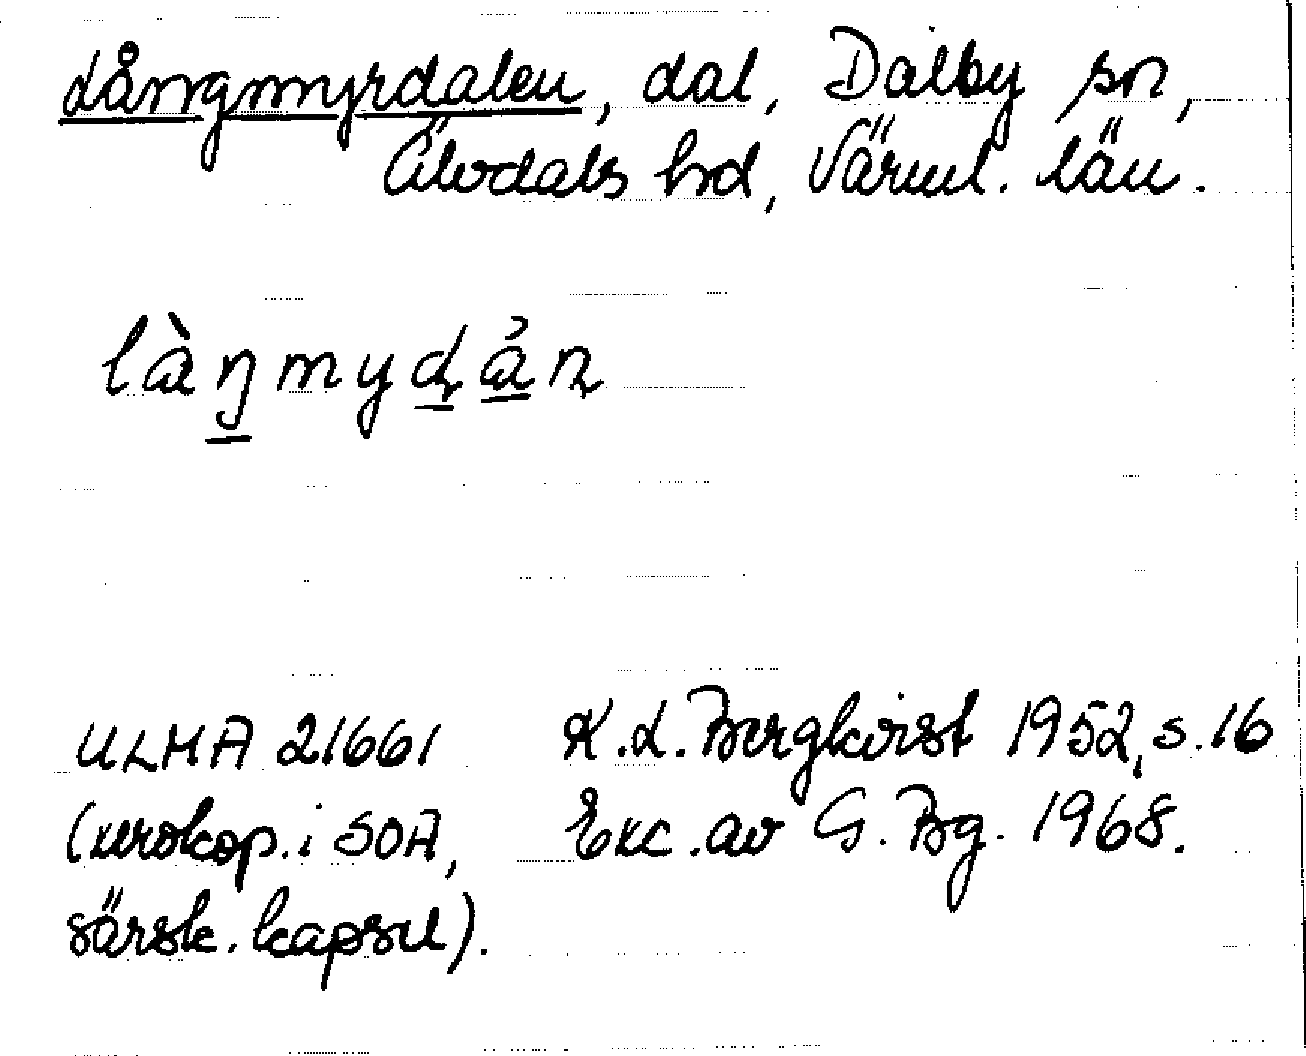 Långmyrdalen, dal, Dalby sn,
Älvdals hd, Värml. län.
làŋmyɖả̲ɳ
ULMA 21661 K.L. Bergkvist 1952, s. 16
(xerokop. i SOA, Exc. av G. Bg. 1968.
särsk. kapsel).